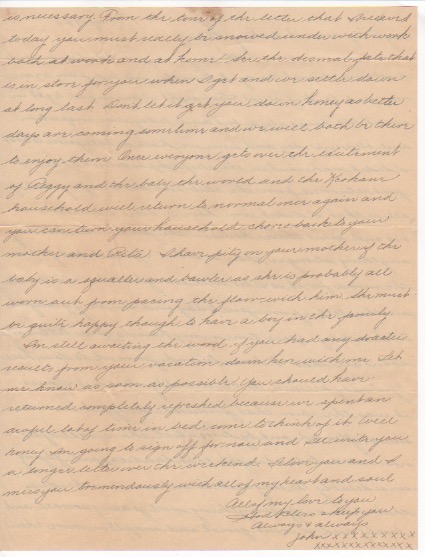 is necessary. From the tone of the letter that I received
today you must really be snowed under with work
both at work and at home! See the dismal fate that
is in store for you when I get and we settle down
at long last. Don't let it get you down honey as better
days are coming sometime and we will both be there
to enjoy them. Once everyone gets over the excitement
of Peggy and the baby the world and the
household will return to normal once again and
you can turn your household chores back to your
mother and Rita. I have pity on your mother if the
baby is a squaller and bawler as she is probably all
worn out from pacing the floor with him. She must
be quite happy though to have a boy in the family.
I'm still awaiting the word if you had any drastic
results from your vacation down here with me. Let
me know as soon as possible. You should have
returned completely refreshed because we spent an
awful lot of time in bed come to think of it. Well
honey I'm going to sign off for now and I'll write you
a longer letter over the weekend. I love you and I
miss you tremendously with all of my heart and soul
All of my love to you
God bless & keep you
Always & always
John x x x x x x x x x
x x x x x x x x x x x x